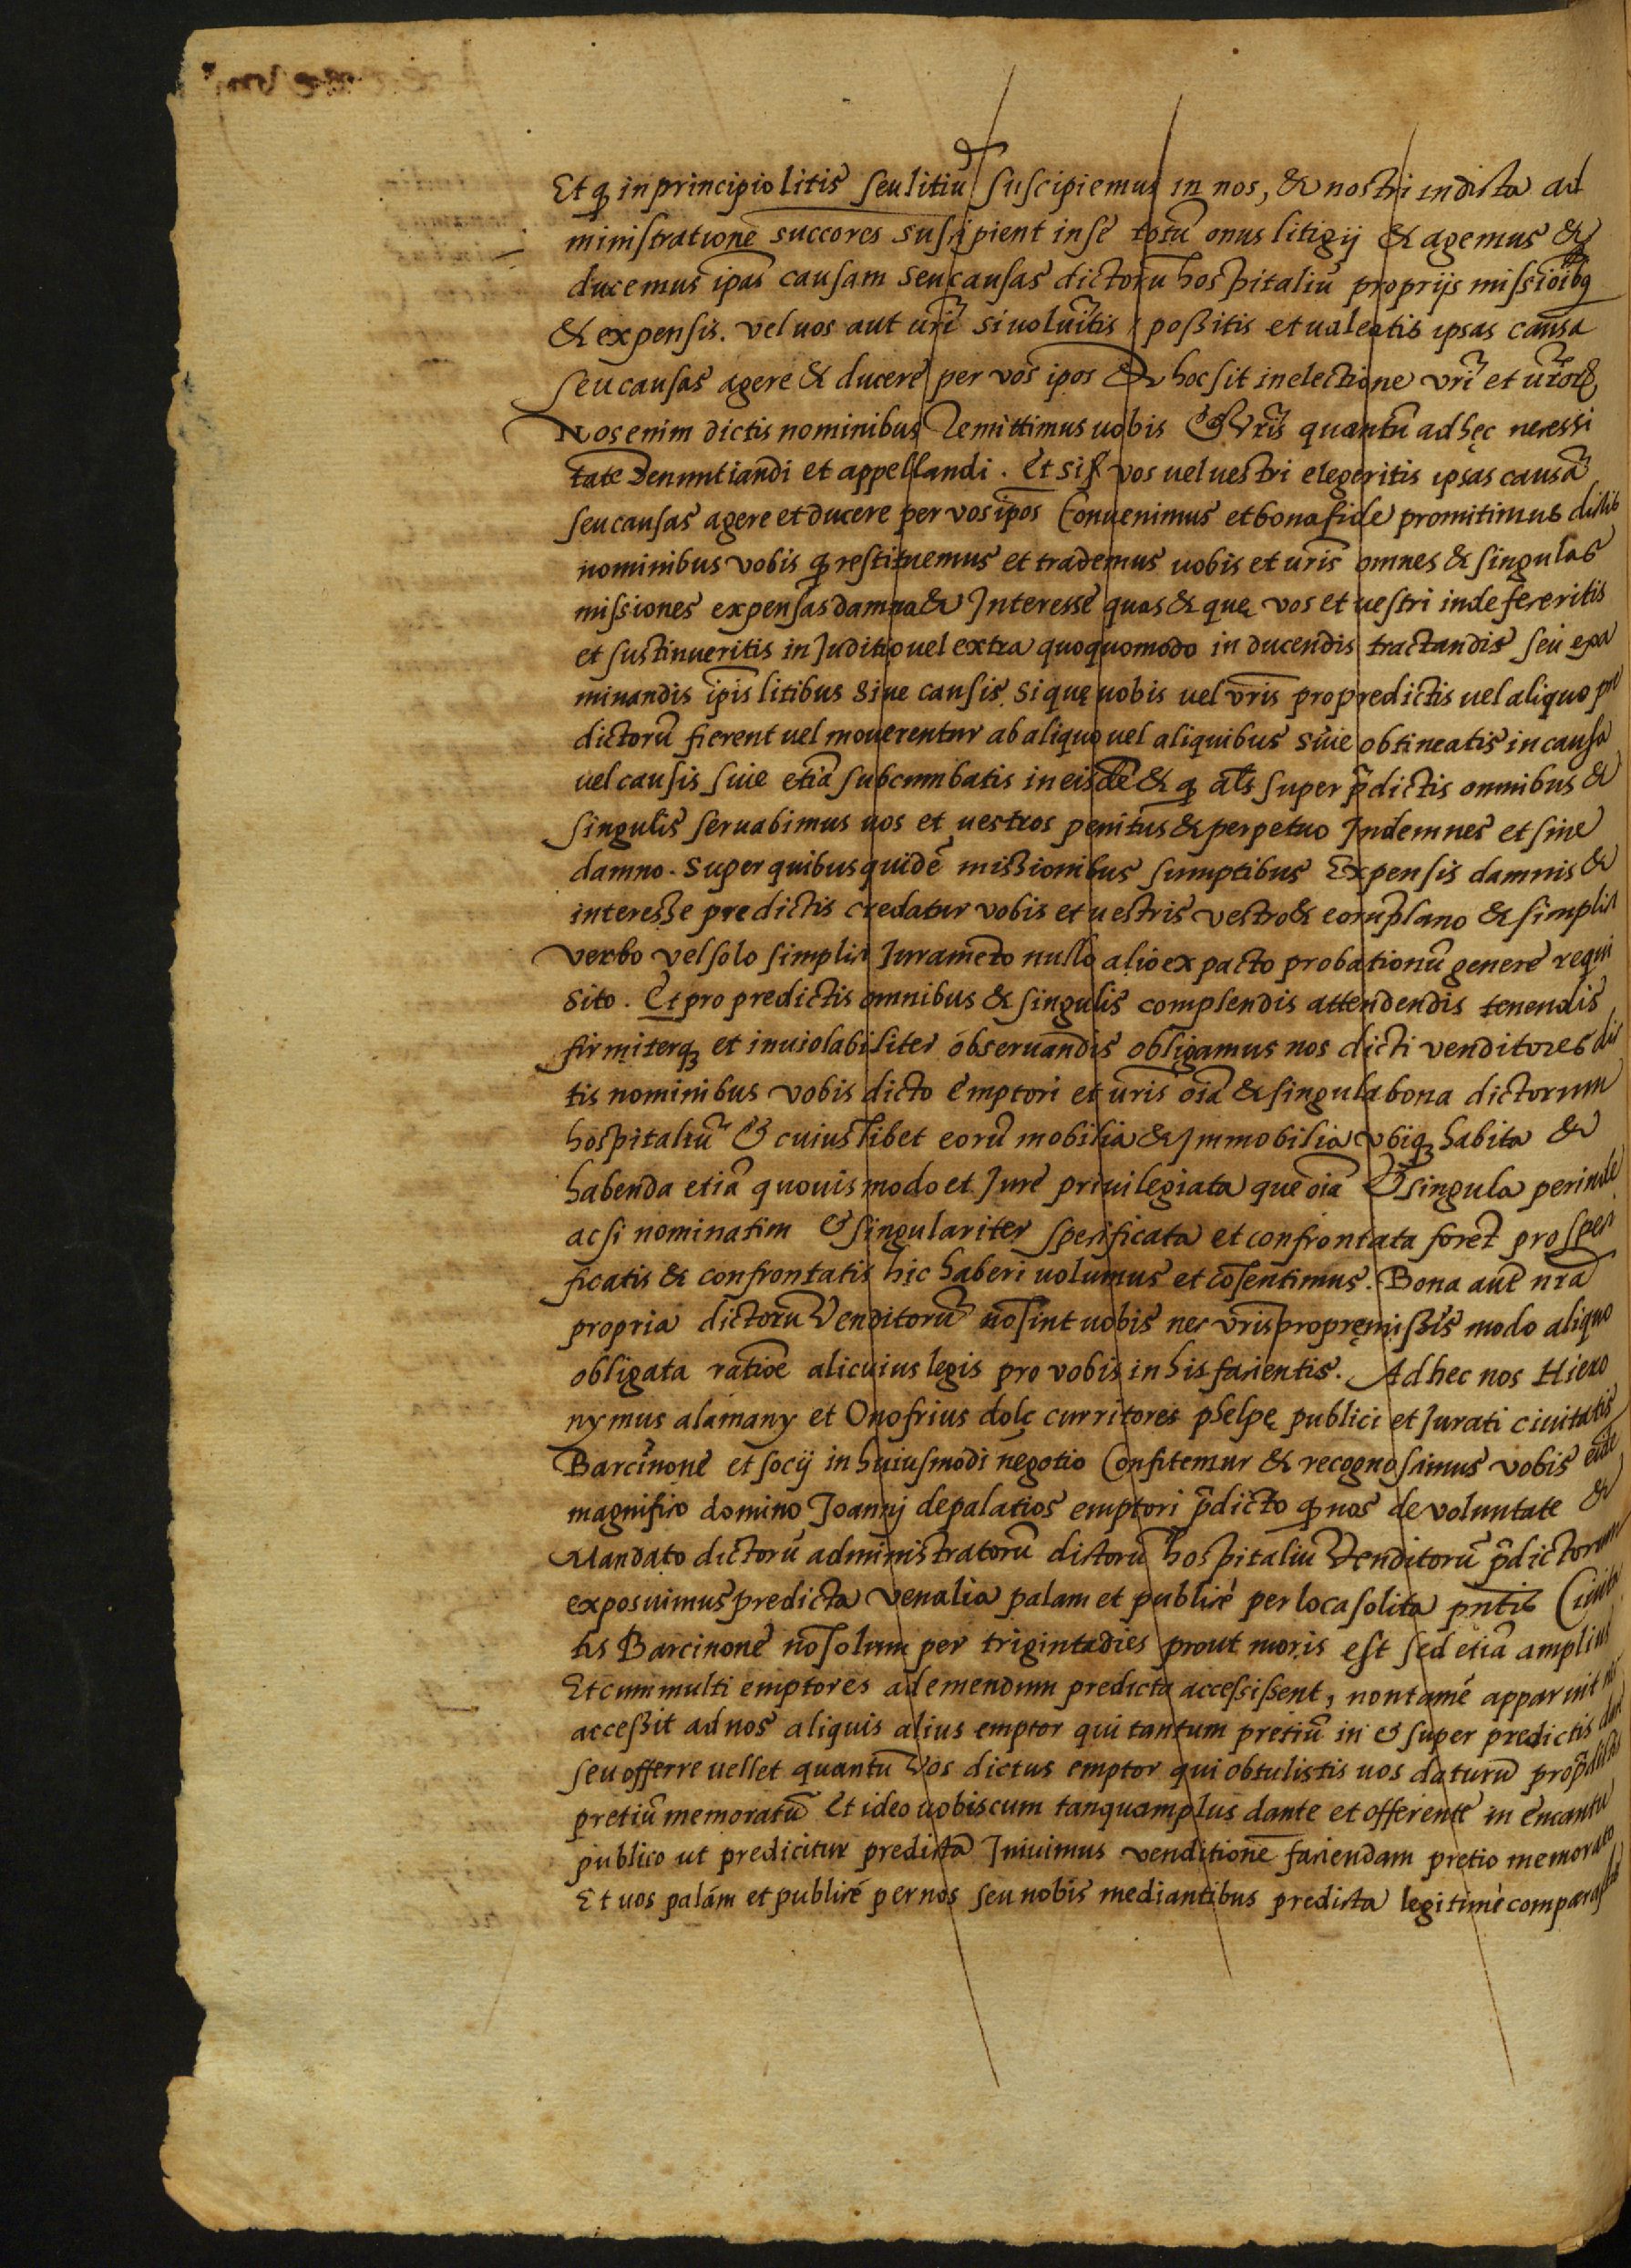 Et q̄ in principio litis seu litiū suscipiemus in nos, & nostri in dicta ad
ministratione succores suscipient in se totū onus litigij & agemus &
ducemus ipas causam seu causas dictorū hospitaliū proprijs missioibq
& expensis. vel uos aut uri si uoluitis possitis et ualeatis ipsas causa
seu causas agere & ducere per vos ipos & hoc sit in electione vri et
Nos enim dictis nominibus Remittimus uobis & Vris quantū ad hęc necessi
tate Denuntiandi et appellandi. Et si vos uel uestri elegeritis ipsas causā
seu causas agere et ducere per vos ipos Conuenimus et bona fide promitimus dictis
nominibus vobis q̄ restituemus et trademus uobis et uris omnes & singulas
missiones expensas damna & Interesse quas & quę vos et uestri inde feceritis
et sustinueritis in Juditio uel extra quoquomodo in ducendis tractandis seu exa
minandis ipis litibus siue causis. si quę uobis uel vris pro predictis uel aliquo pre
dictorū fierent uel mouerentur ab aliquo uel aliquibus siue obtineatis in causa
uel causis siue etiā subcumbatis in eisdē & q̄ als super p̄dictis omnibus &
singulis seruabimus uos et uestros penitus & perpetuo Indemnes et sine
damno. Super quibus quidē missionibus sumptibus Expensis damnis &
interesse predictis credatur vobis et uestris vestro & eorū plano & simplici
verbo vel solo simplici Juramēto nullo alio ex pacto probationū genere requi
sito. Et pro predictis omnibus & singulis complendis attendendis tenendis
firmiterq; et inuiolabiliter obseruandis obligamus nos dicti venditores dic
tis nominibus vobis dicto emptori et uris oīa & singula bona dictorum
hospitaliū & cuiuslibet eorū mobilia & Immobilia vbiq; habita &
habenda etiā quouismodo et Jure priuilegiata que oīa & singula perinde
ac si nominatim & singulariter specificata et confrontata foret pro speci
ficatis & confrontatis hic haberi uolumus et cōsentimus. Bona aut nra
propria dictorū Venditorū nō sint uobis nec vris pro pręmissis modo aliquo
obligata ratioe alicuius legis pro vobis in his facientis. Ad hec nos Hiero
nymus alamany et Onofrius dolç curritores phelpę publici et Jurati ciuitatis
Barcinone et socij in huiusmodi negotio Confitemur & recognoscimus vobis eidē
magnifico domino Joannj de palatios emptori p̄dicto q̄ nos de voluntate &
Mandato dictorū administratorū dictorū hospitaliū Venditorū p̄dictorum
exposuimus predicta venalia palam et publicè per loca solita pntis Ciuita
tis Barcinone nō solum per triginta dies prout moris est sed etiā amplius
Et cum multi emptores ad emendum predicta accessissent, non tamē apparuit nec
accessit ad nos aliquis alius emptor qui tantum pretiū in & super predictis dare
seu offerre uellet quantū Vos dictus emptor qui obtulistis uos daturū pro p̄dictis
pretiū memoratū Et ideo uobiscum tanquam plus dante et offerente in encantu
publico ut predicitur predictā Iniuimus venditionē faciendam pretio memorato
Et uos palám et publicé per nos seu nobis mediantibus predicta legitimè comparastis